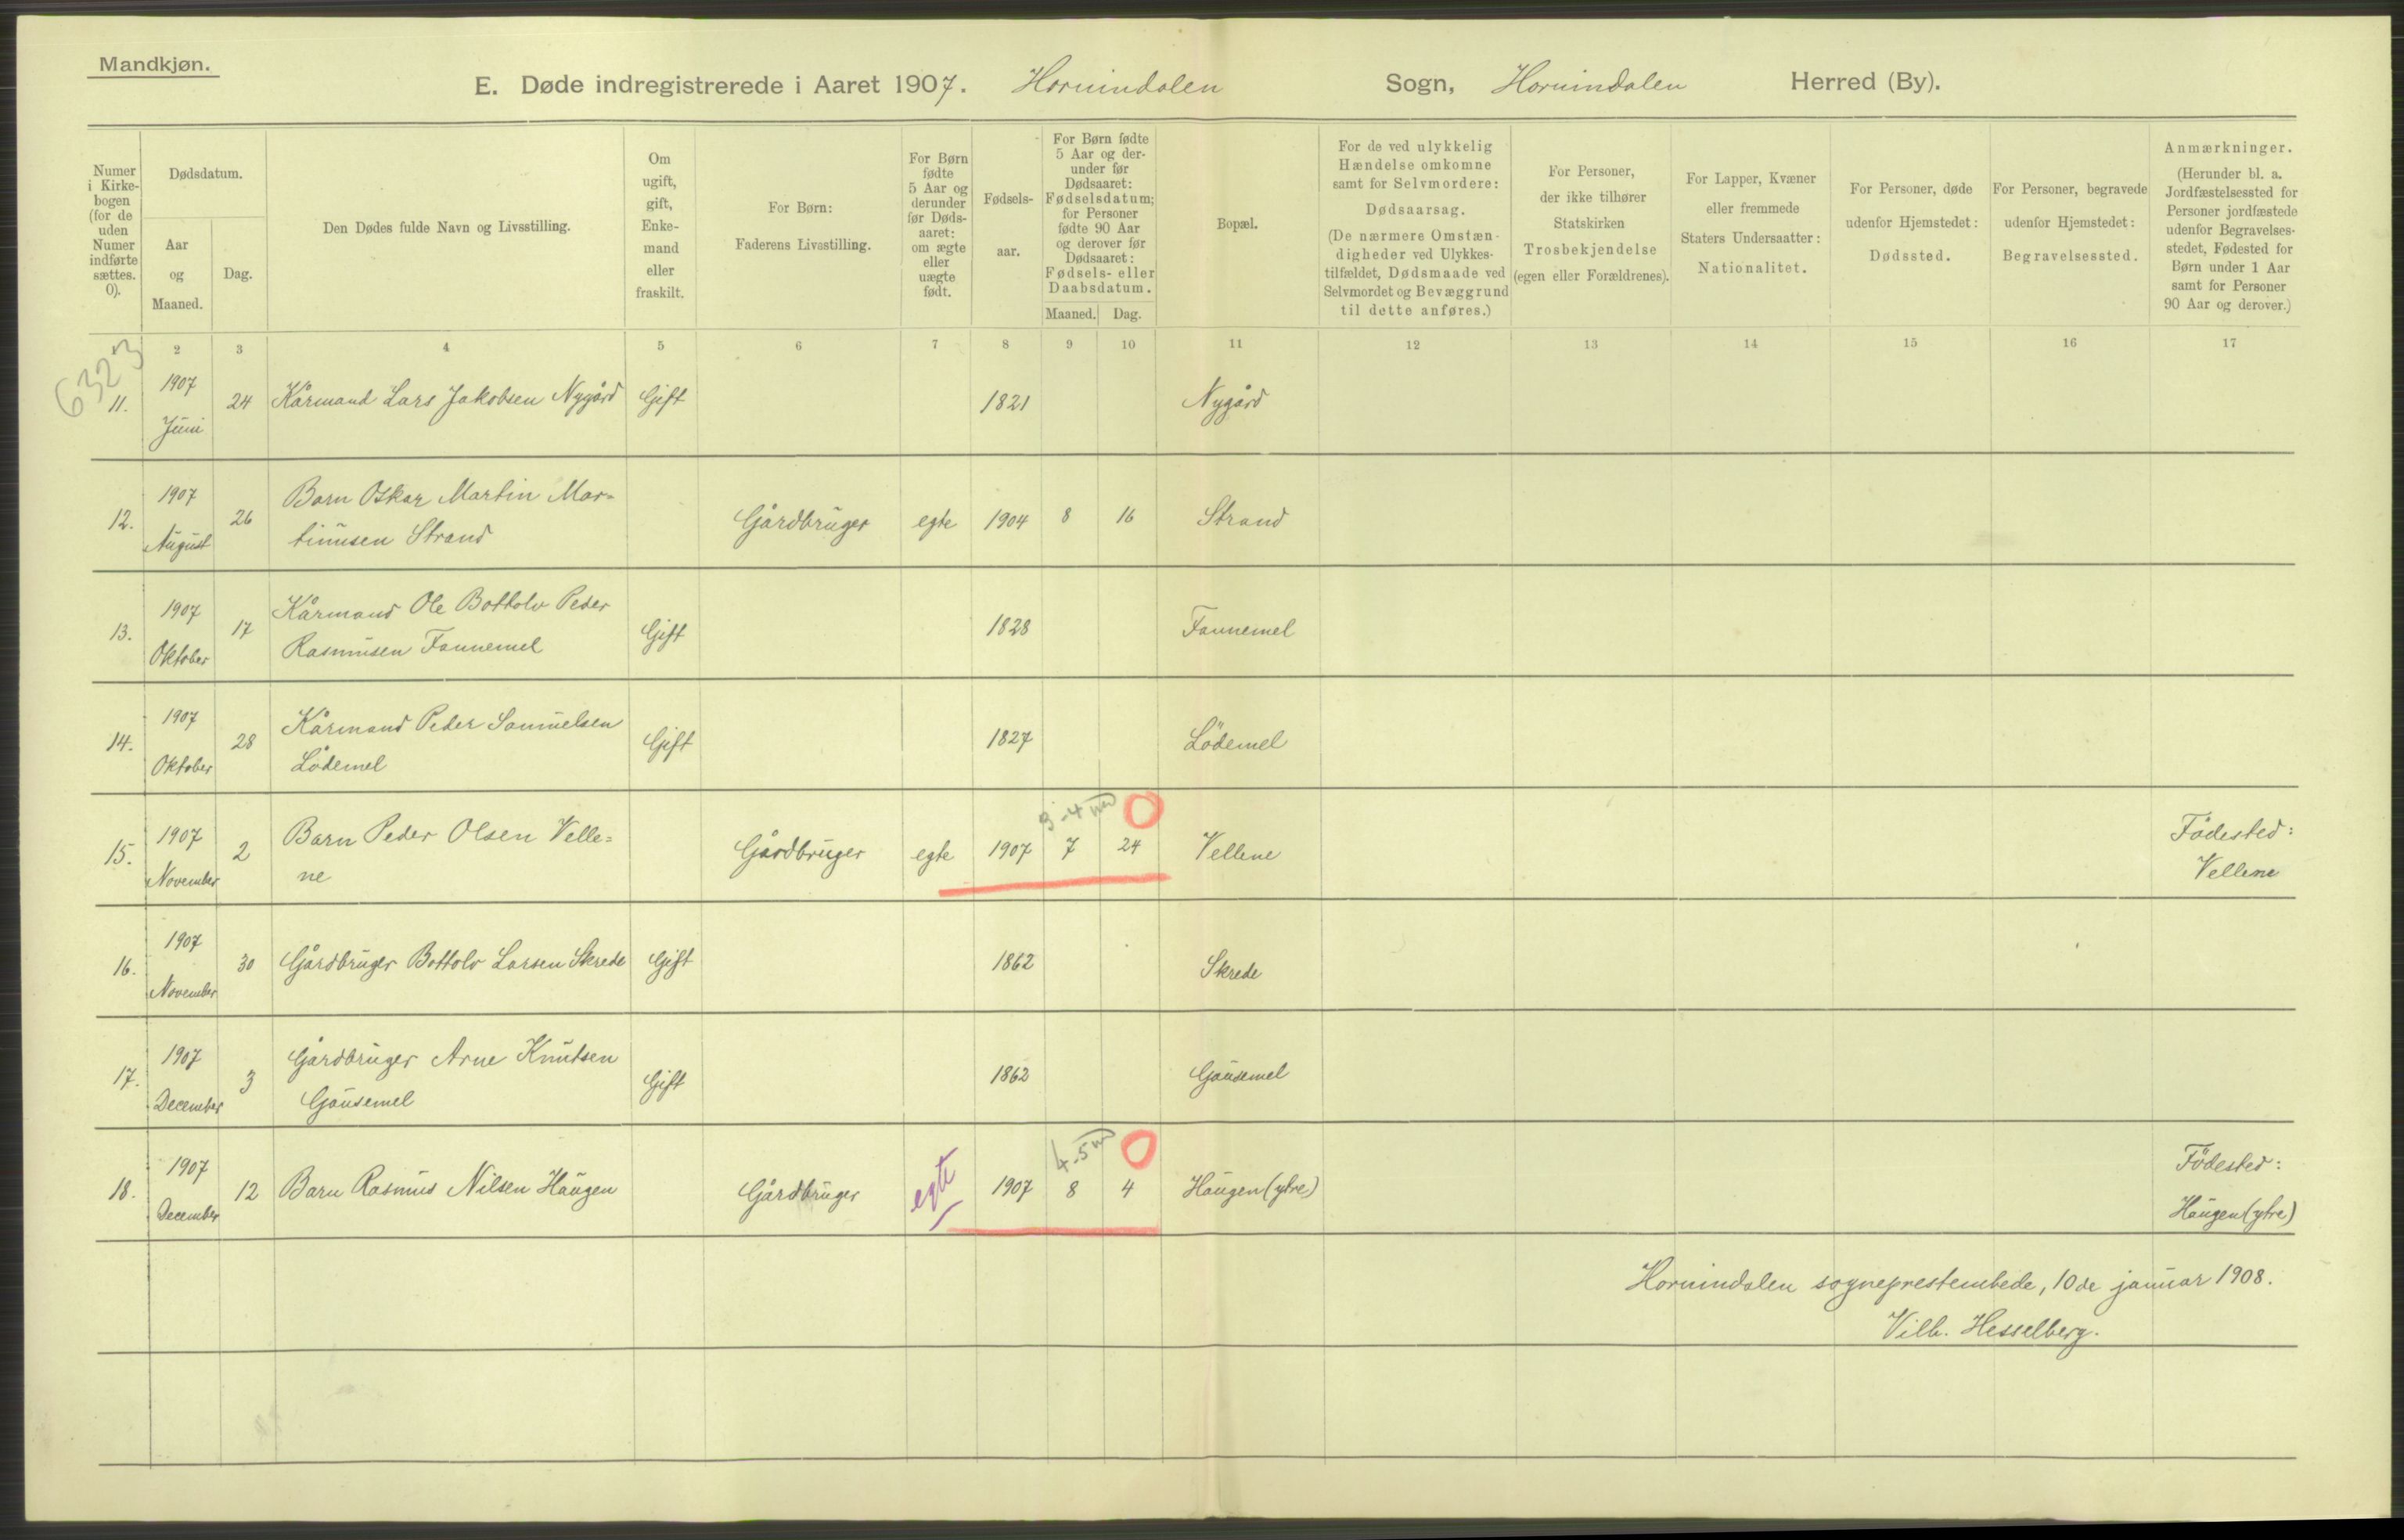 Mandkjøn.
E. Døde indregistrerede i Aaret 1907. Hornindalen Sogn, Hornindalen Herred (By).
Numer i Kirkebogen (for de uden Numer indførte sættes. 0).
Dødsdatum.
Aar og Maaned.
Dag.
Den Dødes fulde Navn og Livsstilling.
Om ugift, gift, Enkemand eller fraskilt.
For Børn:
Faderens Livsstilling.
For Børn fødte 5 Aar og derunder før Dødsaaret: om ægte eller uægte født.
Fødselsaar.
For Børn fødte 5 Aar og derunder før Dødsaaret: Fødselsdatum; for Personer fødte 90 Aar og derover før Dødsaaret: Fødsels- eller Daabsdatum.
Maaned. Dag.
Bopæl.
For de ved ulykkelig Hændelse omkomne samt for Selvmordere: Dødsaarsag. (De nærmere Omstændigheder ved Ulykkestilfældet, Dødsmaade ved Selvmordet og Bevæggrund til dette anføres.)
For Personer, der ikke tilhører Statskirken Trosbekjendelse (egen eller Forældrenes).
For Lapper, Kvæner eller fremmede Staters Undersaatter: Nationalitet.
For Personer, døde udenfor Hjemstedet: Dødssted.
For Personer, begravede udenfor Hjemstedet: Begravelsessted.
Anmærkninger.
(Herunder bl. a. Jordfæstelsessted for Personer jordfæstede udenfor Begravelsesstedet, Fødested for Børn under 1 Aar samt for Personer 90 Aar og derover.)
2 3 4 5 6 7 8 9 10 11 12 13 14 15 16 17
6323
11. 1907 Juni 24 Kårmand Lars Jakobsen Nygård Gift 1821 Nygård
12. 1907 August 26 Barn Oskar Martin Mar=
tinusen Strand Gårdbruger egte 1904 8 16 Strand
13. 1907 Oktober 17 Kårmand Ole Bottolv Peder
Rasmusen Fannemel Gift 1828 Fannemel
14. 1907 Oktober 28 Kårmand Peder Samuelsen
Lödemel Gift 1827 Lödemel
3-4 m
15. 1907 November 2 Barn Peder Olsen Velle=
ne Gårdbruger egte 1907 7 24 Vellene Födested: Vellene
16. 1907 November 30 Gårdbruger Bottolv Larsen Skrede Gift 1862 Skrede
17. 1907 December 3 Gårdbruger Arne Knutsen
Gausemel Gift 1862 Gausemel
4-5 m
18. 1907 December 12 Barn Rasmus Nilsen Haugen Gårdbruger egte 1907 8 4 Haugen (ytre) Födested: Haugen (ytre)
Hornindalen sogneprestembede, 10de januar 1908.
Vilh. Hesselberg.